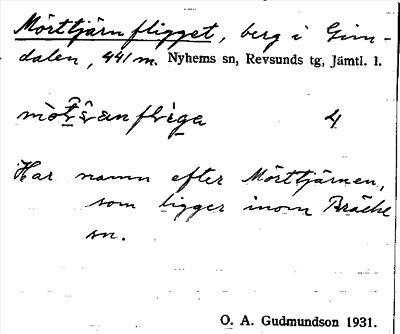 Mörttjärnfligget, berg i Gim-
dalen, 441 m. Nyhems sn, Revsunds tg, Jämtl. l.
4
Har namn efter Mörttjärnen,
som ligger inom Bräcke
sn.
O. A. Gudmundson 1931.